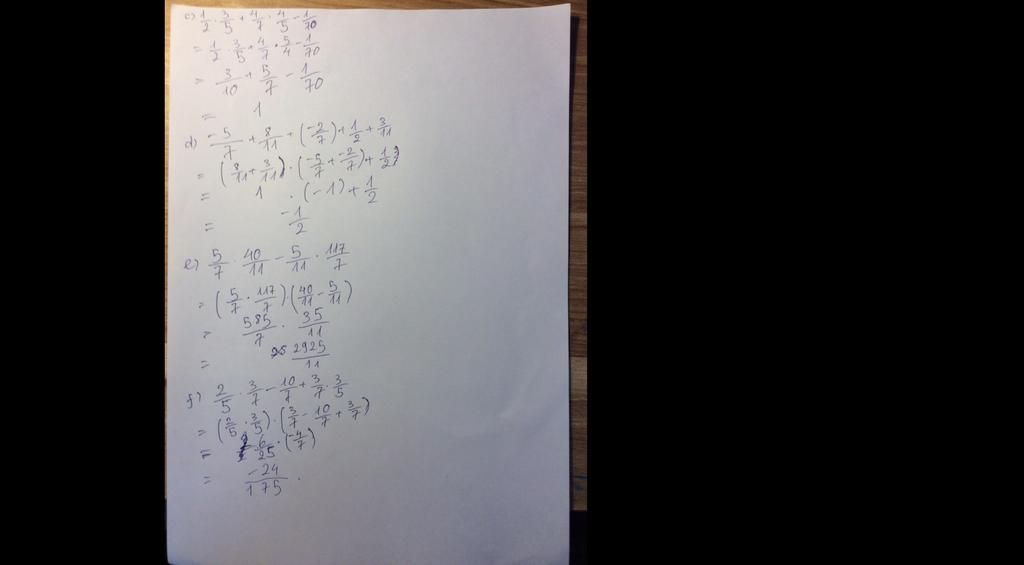 c) 1/2 · 3/5 + 4/7 : 4/5 - 1/70
= 1/2 · 3/5 + 4/7 · 5/4 - 1/70
= 3/10 + 5/7 - 1/70
= 1
d) -5/7 + 8/11 + (-2/7) + 1/2 + 3/11
= (8/11 + 3/11) · (-5/7 + -2/7) + 1/2
= 1 · (-1) + 1/2
= -1/2
e) 5/7 · 40/11 - 5/11 · 117/7
= (5/7 · 117/7) · (40/11 - 5/11)
= 585/7 · 35/11
= 2925/11
f) 2/5 · 3/7 - 10/7 + 3/7 · 3/5
= (2/5 · 3/5) · (3/7 - 10/7 + 3/7)
= 6/25 · (-4/7)
= -24/175 .